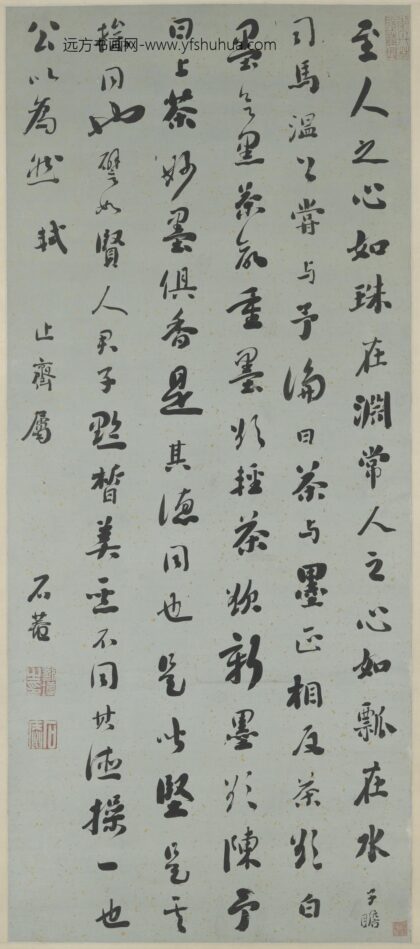 远方书画网-www.yfshuhua.com
至人之心如珠在淵常人之心如瓢在水 子瞻
司馬温公嘗与予論曰茶与墨正相反茶欲白
墨欲黑茶欲重墨欲輕茶欲新墨欲陳予
曰上茶妙墨俱香是其德同也是皆堅是其
操同也譬如賢人君子黔皙美惡不同其德操一也
公以為然 軾 止齋屬 石菴